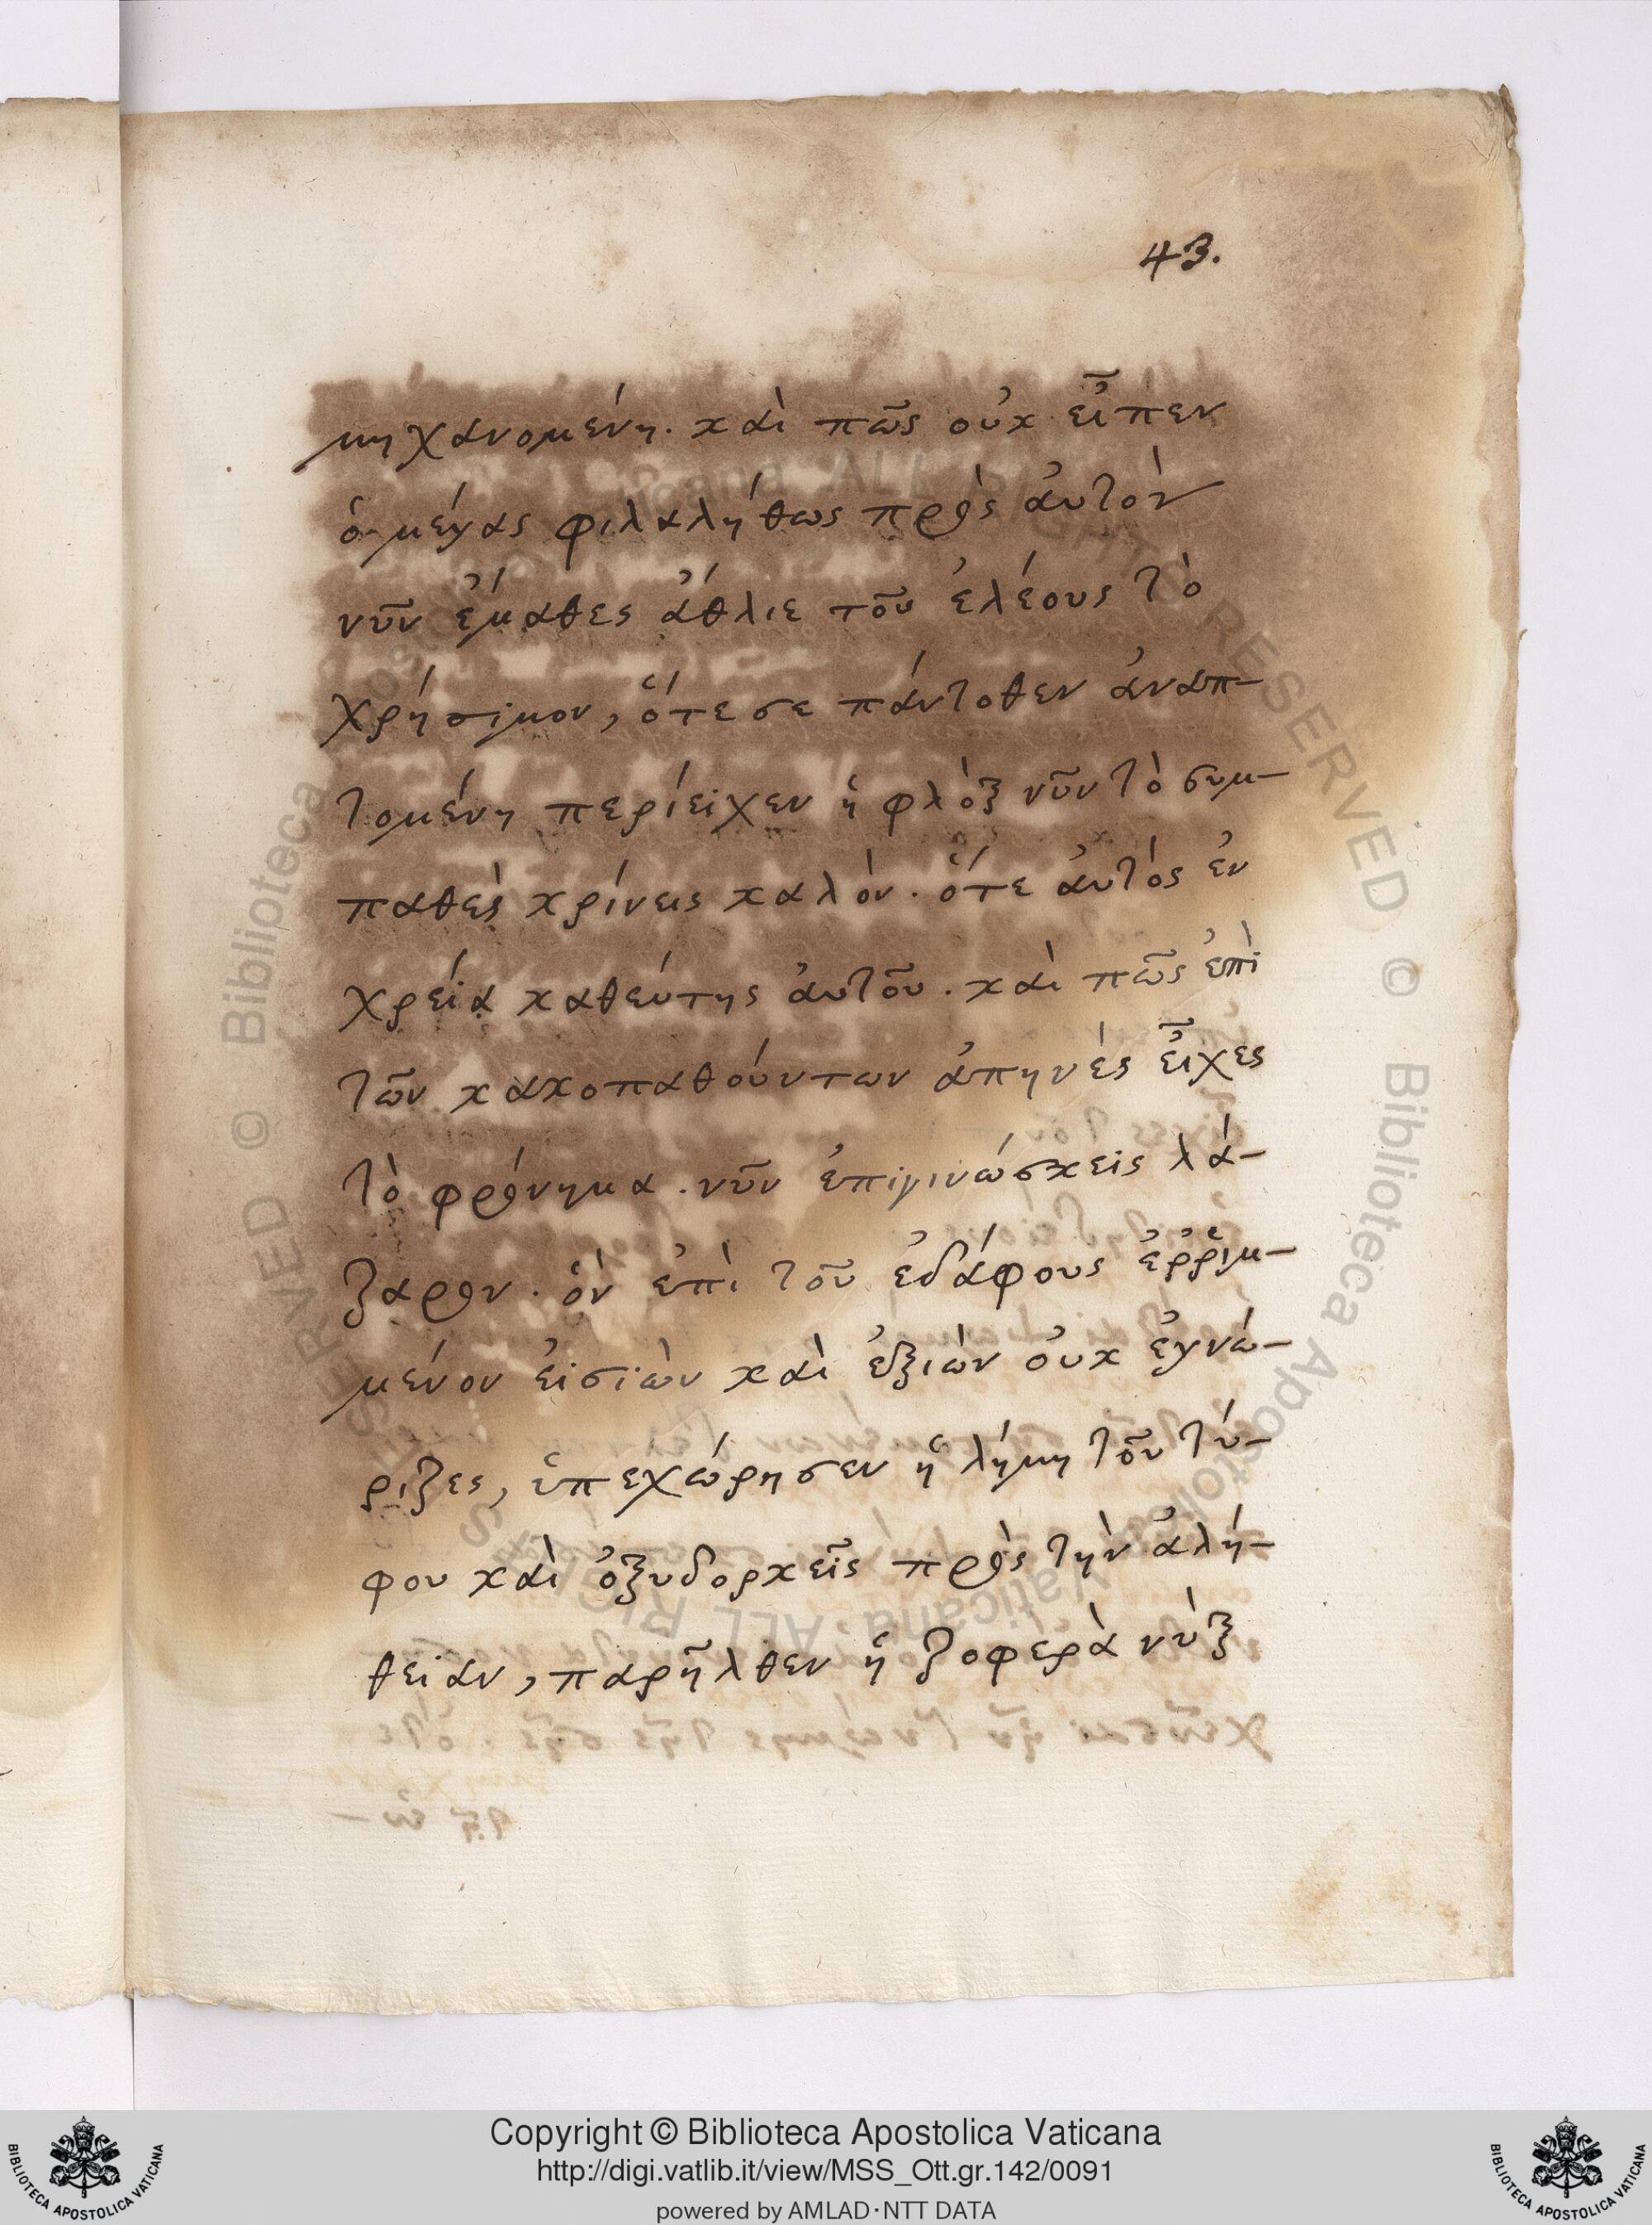 43.
μηχανομένη. καὶ πῶς οὐκ εἶπεν
ὁ μέγας φιλαλήθως πρὸς ἀυτὸν
νῦν ἔμαθες ἄθλιε τοῦ ἐλέους τὸ
χρήσιμον, ὅτε σε πάντοθεν ἀναπ-
τομένη περίειχεν ἡ φλὸξ νῦν τὸ συμ-
παθὲς κρίνεις καλὸν. ὅτε ἀυτὸς ἐν
χρείᾳ καθεύτης ἀυτοῦ. καὶ πῶς ἐπὶ
τῶν κακοπαθούντων ἀπηνὲς εἶχες
τὸ φρόνημα. νῦν ἐπιγινώσκεις λά-
ζαρον. ὃν ἐπὶ τοῦ ἐδάφους ἐῤῥιμ-
μένον ἐισιὼν καὶ ἐξιὼν οὐκ ἐγνώ-
ριζες, ὑπεχώρησεν ἡ λήμη τοῦ τύ-
φου καὶ ὀξυδορκεῖς πρὸς τὴν ἀλή-
θειαν, παρῆλθεν ἡ ζοφερὰ νὺξ
Copyright © Biblioteca Apostolica Vaticana
http://digi.vatlib.it/view/MSS_Ott.gr.142/0091
powered by AMLAD·NTT DATA
BIBLIOTECA APOSTOLICA VATICANA
BIBLIOTECA APOSTOLICA VATICANA